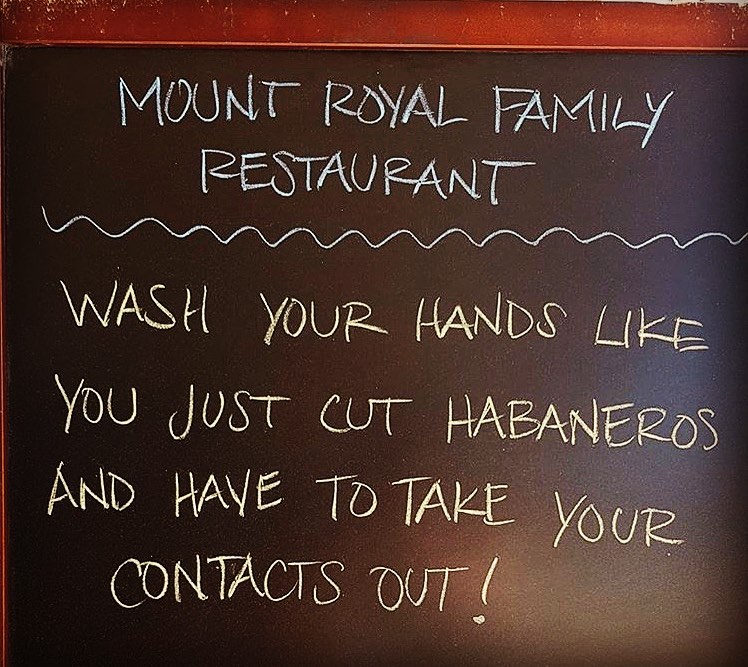 MOUNT ROYAL FAMILY
RESTAURANT
WASH YOUR HANDS LIKE
YOU JUST CUT HABANEROS
AND HAVE TO TAKE YOUR
CONTACTS OUT!